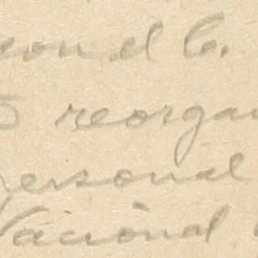 con el C.
reorga
personal
Nacional